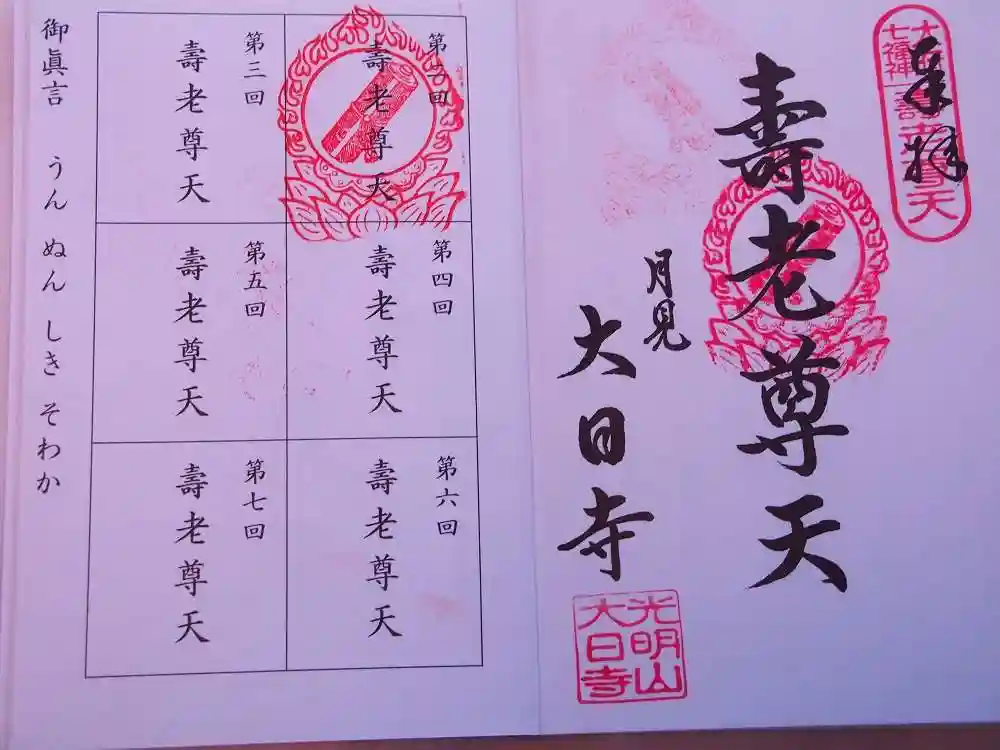 七福神
壽老尊天
奉拝
壽老尊天
月見
大日寺
光明山
大日寺
第二回
壽老尊天
第三回
壽老尊天
第四回
壽老尊天
第五回
壽老尊天
第六回
壽老尊天
第七回
壽老尊天
御眞言 うん ぬん しき そわか